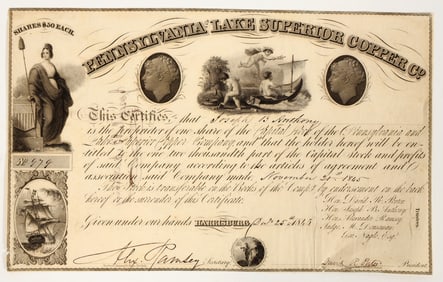 SHARES $50 EACH.
PENNSYLVANIA AND LAKE SUPERIOR COPPER CO.
This Certifies, that Joseph B Anthony
is the proprietor of one share of the Capital Stock of the Pennsylvania and
Lake Superior Copper Company, and that the holder hereof will be en-
titled to the one two thousandth part of the Capital Stock and profits
of said Company according to the articles of agreement and
association of said Company made November 20th 1845
This Stock is transferable on the Books of the Company by endorsement on the back
hereof on the surrender of this Certificate.
No. 979
Hon. David R. Porter
Hon. Joseph B. Anthony
Hon. Alexander Ramsey
Judge
Geo. Nagle, Esq.
Trustees.
Given under our hands HARRISBURG, 25th 1845
Alex. Ramsey Secretary
David R. Porter President